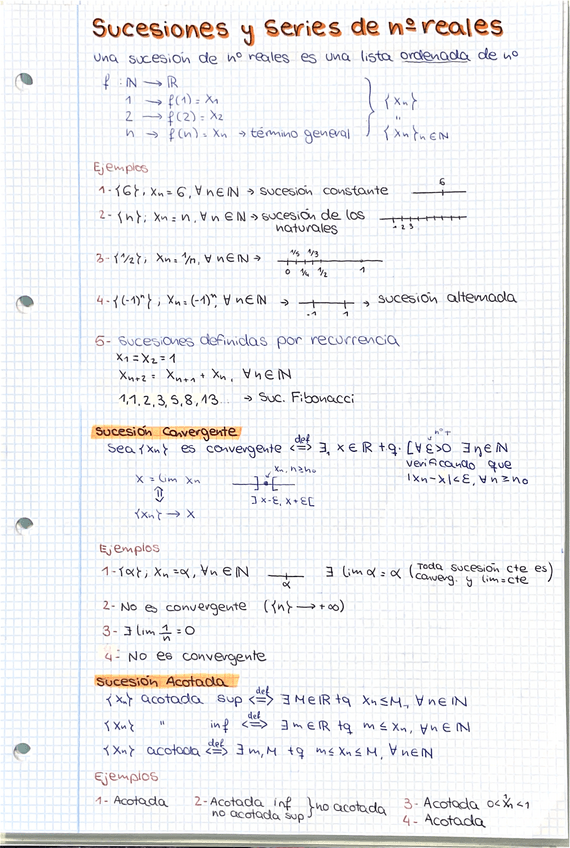 Sucesiones y series de nº reales
una sucesión de nº reales es una lista ordenada de nº
f : ℕ → ℝ
1 → f(1) = X1
2 → f(2) = X2
n → f(n) = Xn → término general
{Xn}
"
{Xn}n∈ℕ
Ejemplos
1-{6}, Xn = 6, ∀n∈ℕ → sucesión constante
6
2-{n}; Xn = n, ∀n∈ℕ → sucesión de los naturales
1 2 3
3-{1/2}, Xn = 1/n, ∀n∈ℕ →
1/5 1/3
0 1/4 1/2 1
4-{(-1)ⁿ}, Xn = (-1)ⁿ, ∀n∈ℕ → -1 1 → sucesión alternada
5- Sucesiones definidas por recurrencia
X1 = X2 = 1
Xn+2 = Xn+1 + Xn, ∀n∈ℕ
1,1,2,3,5,8,13... → Suc. Fibonacci
Sucesión Convergente
Sea {Xn} es convergente def⟺ ∃, x∈ℝ tq. [∀ε>0 ∃η∈ℕ
nº+
verificando que
|Xn-X|<ε, ∀n≥n0
X = lim Xn
⇕
{Xn} → X
Xn, n≥n0
]x-ε, x+ε[
Ejemplos
1-{α}, Xn = α, ∀n∈ℕ
α
∃ lim α = α (Toda sucesión cte es converg. y lim=cte)
2- No es convergente ({n} → +∞)
3- ∃ lim 1/n = 0
4- No es convergente
Sucesión Acotada
{Xn} acotada sup def⟺ ∃M∈ℝ tq Xn≤M, ∀n∈ℕ
{Xn} " inf def⟺ ∃m∈ℝ tq m≤Xn, ∀n∈ℕ
{Xn} acotada def⟺ ∃m,M tq m≤Xn≤M, ∀n∈ℕ
Ejemplos
1- Acotada
2- Acotada inf
no acotada sup } no acotada
3- Acotada 0<
<1
4- Acotada